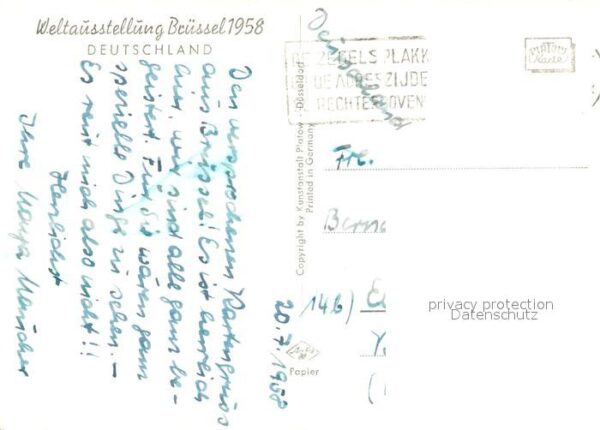 Weltausstellung Brüssel 1958
DEUTSCHLAND
Den versprochenen Kartengruss
aus Brüssel! Es ist herrlich
hier, wir sind alle ganz be-
geistert. Für Sie wären ganz
spezielle Dinge zu sehen. –
Es reut mich also nicht!!
Herzlichst
Ihre
20.7.1958
Copyright by Kunstanstalt Platow - Düsseldorf
Printed in Germany
Deutschland
DE ZEGELS PLAKK
DE ADRESZIJDE
RECHTERBOVEN
PLATOW
Karte
Frl.
Bern
146)
Papier
privacy protection
Datenschutz